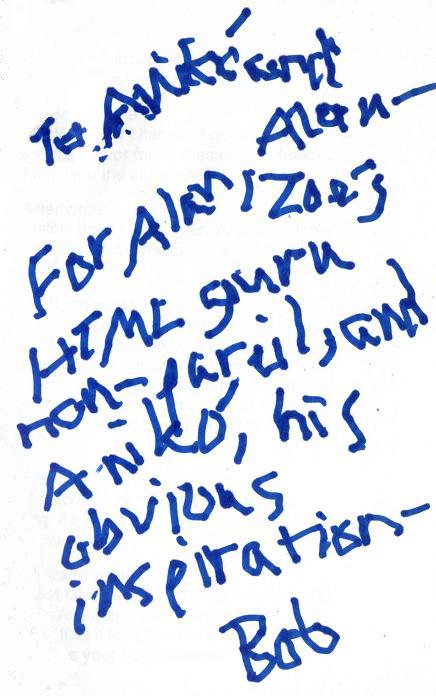 To Anikó and
Alan—
For Alan, Zoë's
HTML guru
non-pareil, and
Anikó, his
obvious
inspiration—
Bob